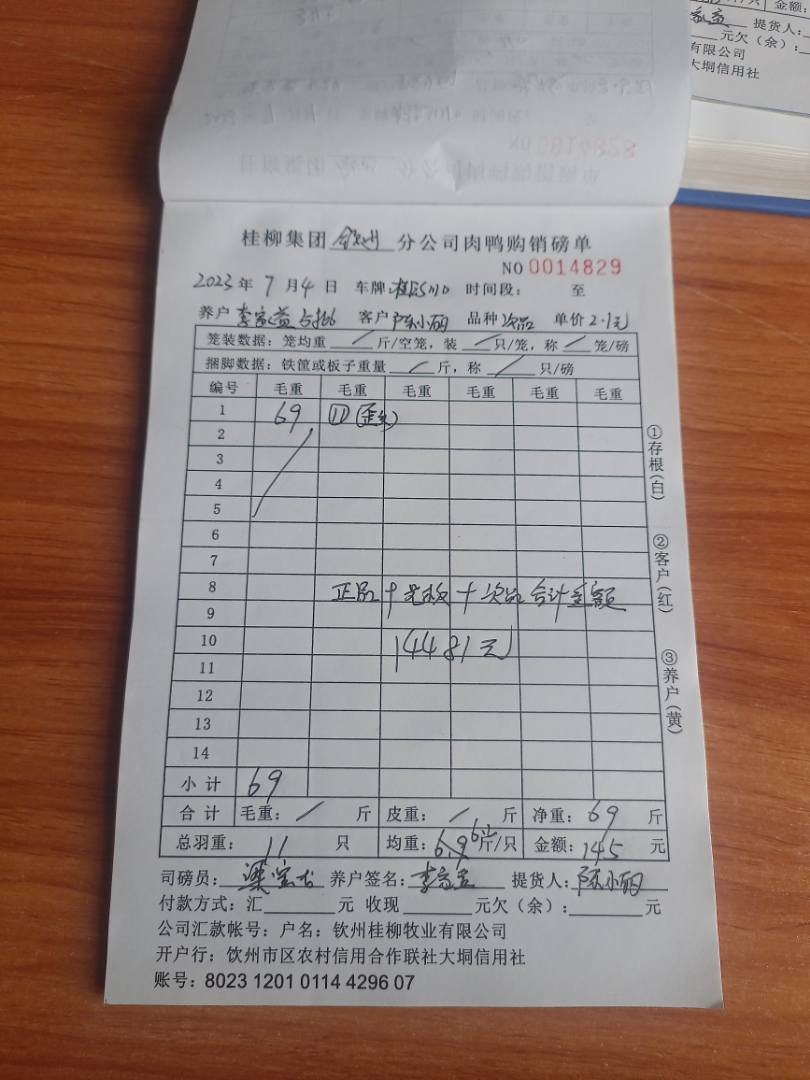 桂柳集团 钦州 分公司肉鸭购销磅单
NO 0014829
2023 年 7 月 4 日 车牌: 时间段: 至
养户 李家益 客户 陈小丽 品种 次品 单价 2.1元
笼装数据: 笼均重 / 斤/空笼, 装 / 只/笼, 称 / 笼/磅
捆脚数据: 铁筐或板子重量 / 斤, 称 / 只/磅
编号 毛重 毛重 毛重 毛重 毛重 毛重
1 69 ⑪ (歪头)
2
3
4
5
6
7
8 正品 + 毛收 + 次品 合计金额
9
10 14481元
11
12
13
14
小计 69
合计 毛重: / 斤 皮重: / 斤 净重: 69 斤
总羽重: 11 只 均重: 斤/只 金额: 145 元
司磅员: 养户签名: 李家益 提货人: 陈小丽
付款方式: 汇 元 收现 元欠(余): 元
公司汇款帐号: 户名: 钦州桂柳牧业有限公司
开户行: 钦州市区农村信用合作联社大垌信用社
账号: 8023 1201 0114 4296 07
①存根(白)
②客户(红)
③养户(黄)
只 金额:
提货人:
元欠(余):
有限公司
大垌信用社